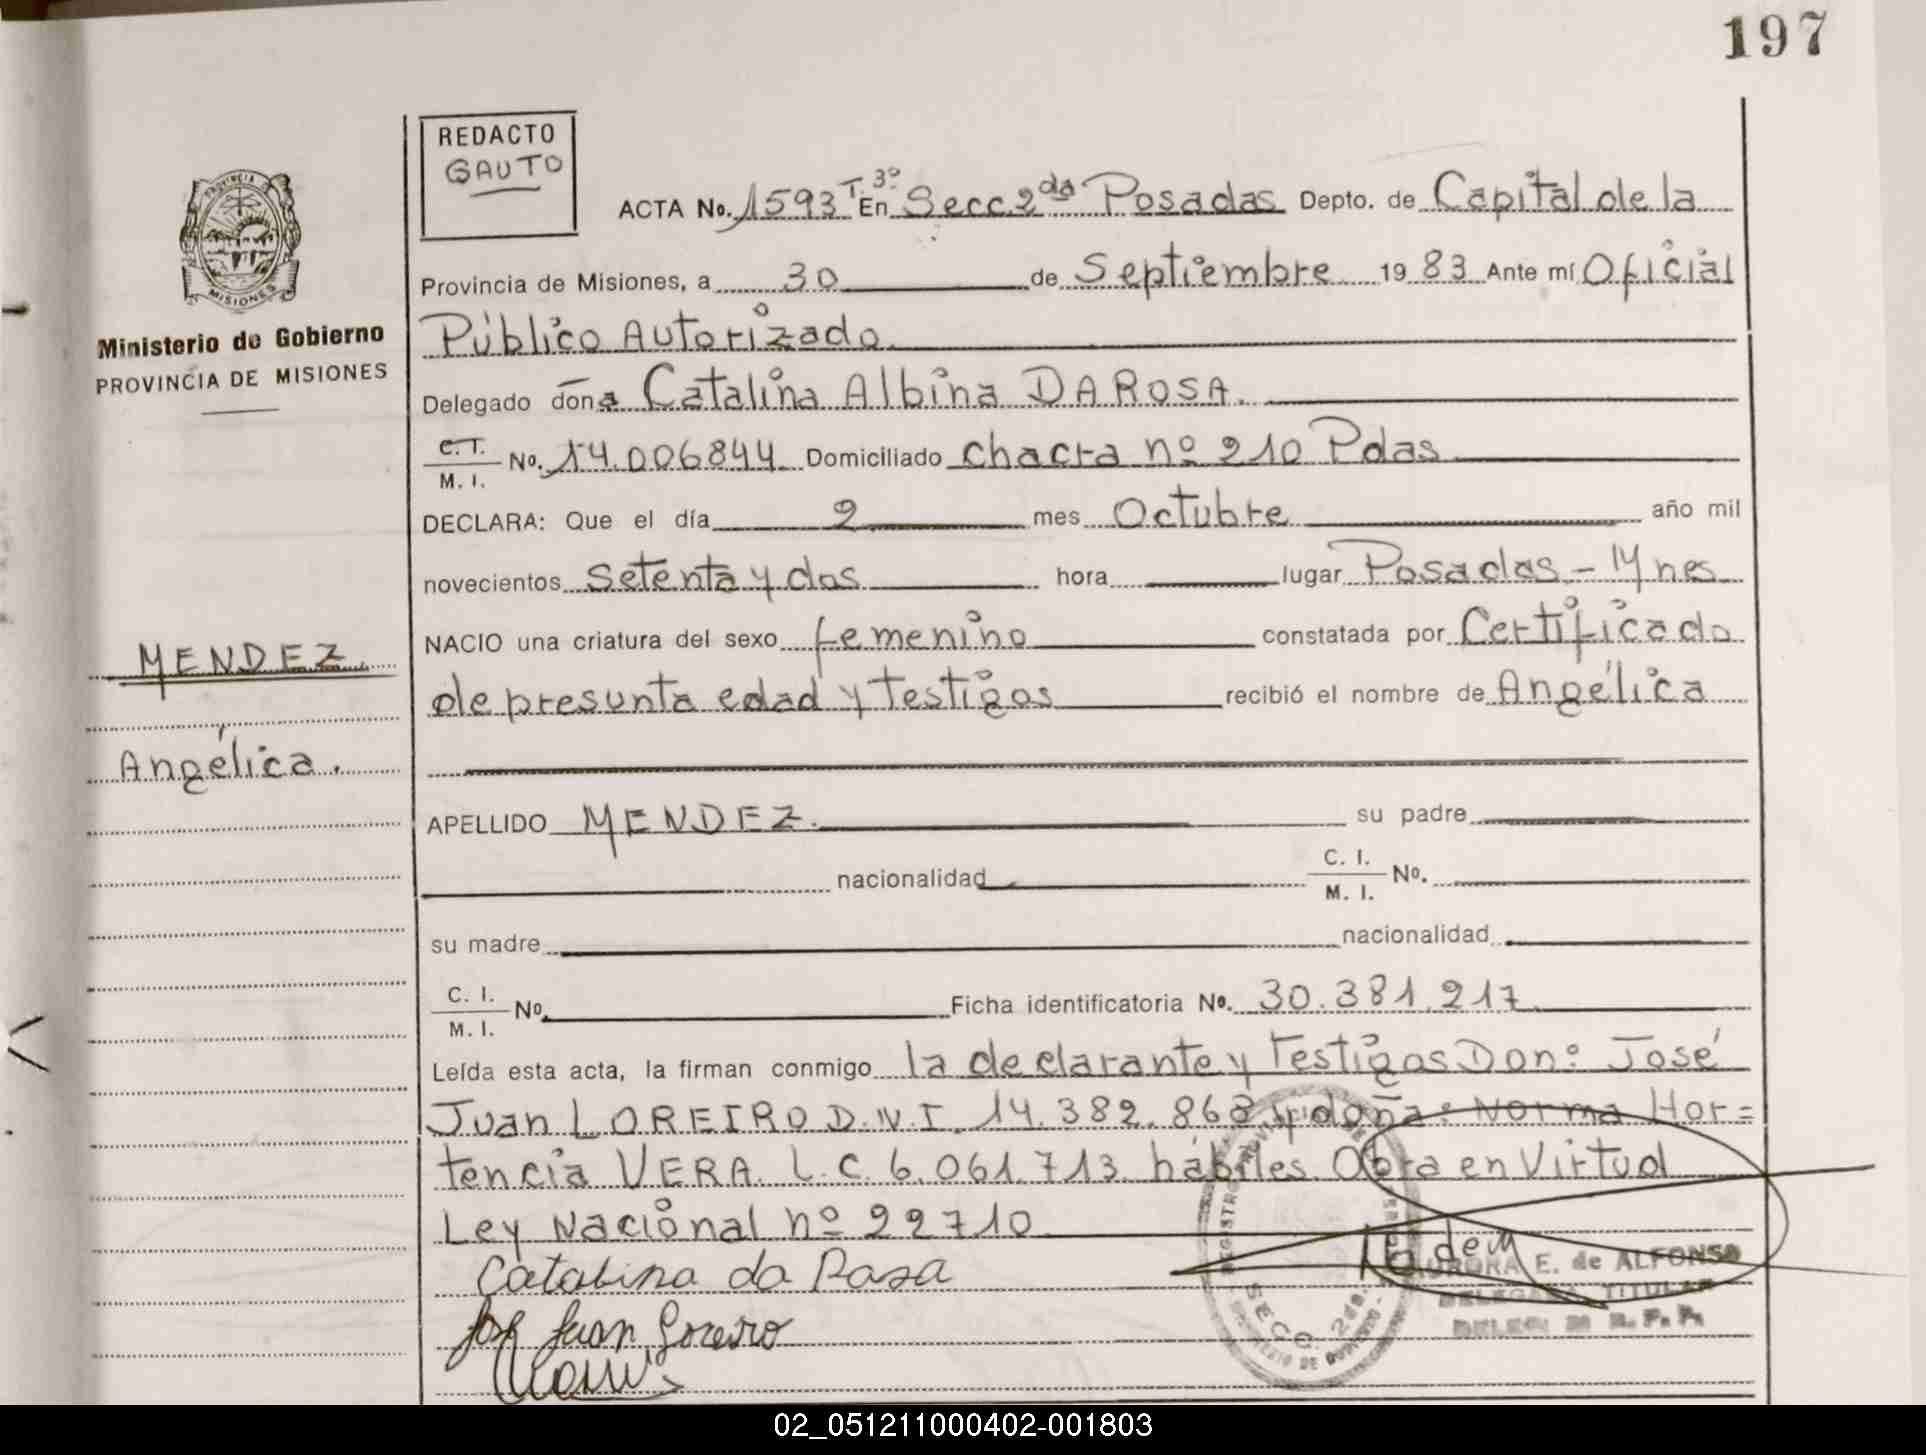 197
REDACTO
GAUTO
ACTA No. 1593 T. 3º En Secc. 2da Posadas Depto. de Capital de la
Provincia de Misiones, a 30 de Septiembre 1983 Ante mí Oficial
Público Autorizado.
Delegado doña Catalina Albina DA ROSA.
C. I. M. I. No. 14.006844 Domiciliado chacra nº 210 Pdas
DECLARA: Que el día 2 mes Octubre año mil
novecientos setenta y dos hora lugar Posadas - Mnes
NACIO una criatura del sexo femenino constatada por Certificado
de presunta edad y testigos recibió el nombre de Angélica
APELLIDO MENDEZ. su padre
nacionalidad C. I. M. I. No.
su madre nacionalidad
C. I. M. I. No. Ficha identificatoria No. 30.381.217
Leída esta acta, la firman conmigo la declarante y testigos Don: José
Juan LOREIRO D.N.I. 14.382.868 y doña: Norma Hor=
tencia VERA. L.C. 6.061.713. hábiles. Obra en Virtud
Ley Nacional nº 22710
Catalina da Rosa
José Juan Loreiro
MISIONES
Ministerio de Gobierno
PROVINCIA DE MISIONES
MENDEZ.
Angélica.
SECC. 2da.
AURORA E. de ALFONSO
DELEGADA TITULAR
02_051211000402-001803